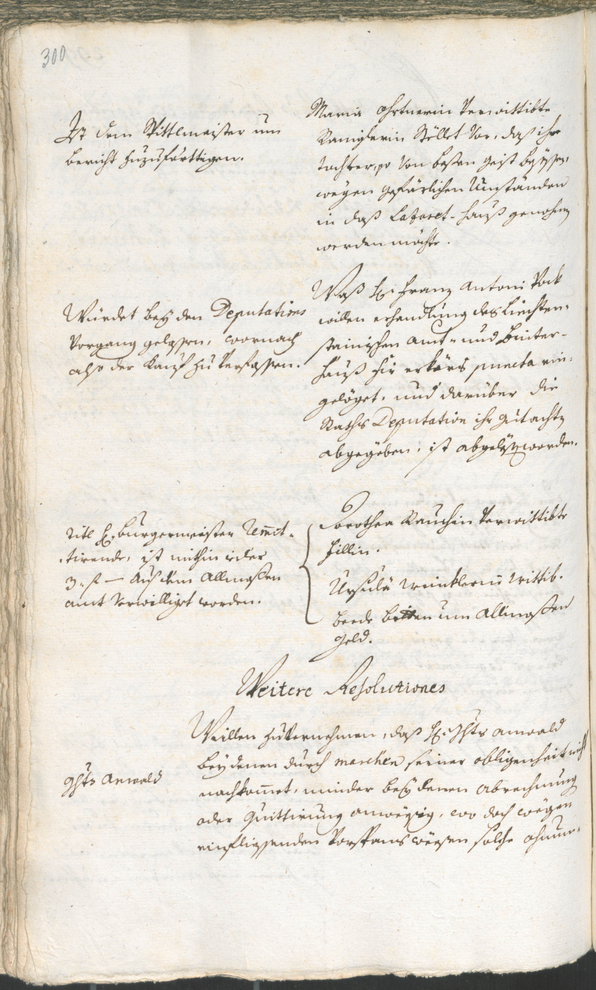 300
Ist dem Spittlmeister um
bericht zuzuförttigen.
Maria Ortnerin verwittibte
Stellet vor, daß ihre
tochter, von besen Geist
wegen gefärlichen Umständen
in daß Lazaret-hauß genohmen
werden möchte.
Würdet bey den Deputations
Vorgang gelassen, wornach
also der Kauf zu verfassen.
Waß H: Franz Antoni Vock
wegen erhandlung des Liechten-
stainischen amt- und Hinter-
hauß für puncta ein-
geleget, und darüber die
Raths Deputation ihr Gutachten
abgegeben, ist abgelesen worden.
Titl H: burgermeister remit-
tirende, ist mithin jeder
3. f — aus dem Allmosen
amt verwilliget worden.
Dorothea Rauchin verwittibte
Zillin.
Ursula Winklerin wittib.
beede bitten um Allmosen
geld.
Weitere Resolutiones
Weillen zuvernehmen, daß H: Ghts anwald
bey denen durch marchen, seiner obligenheit nicht
nachkommet, minder bey denen abrechnung
oder Quittirung anwesig, wo doch wegen
einfliessenden Vorspanswesen solche
Ghts Anwald